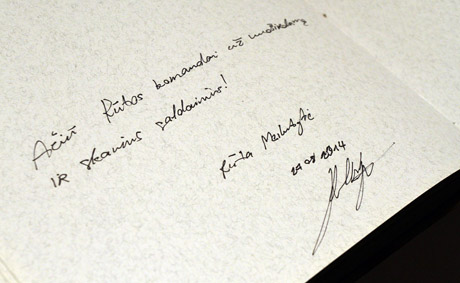 Ačiū Rūtos komandai už nuoširdumą
ir skanius saldainius!
Rūta Meilutytė
2014